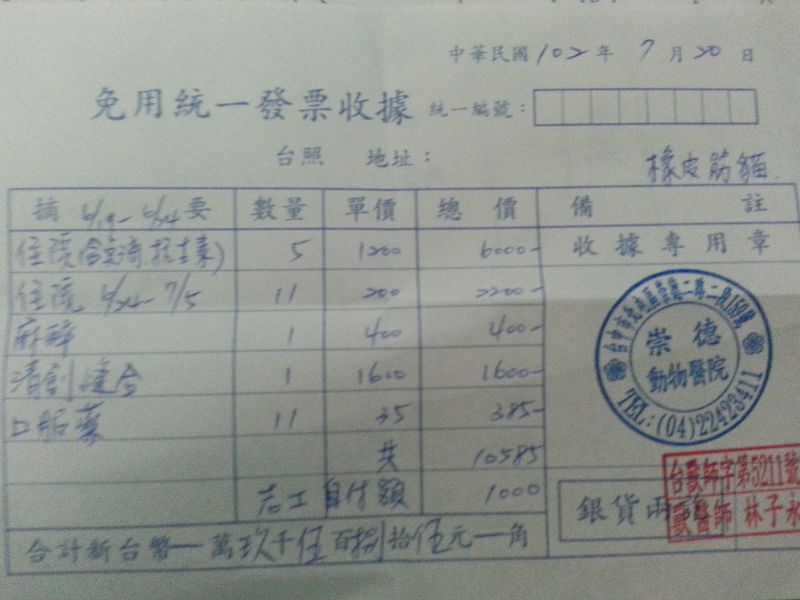 中華民國 102 年 7 月 20 日
免用統一發票收據 統一編號：
台照 地址：
橡皮筋貓
摘 6/19-6/24 要 數量 單價 總價 備註
住院(含點滴.抗生素) 5 1200 6000-
收據專用章
住院 6/24-7/5 11 200 2200-
麻醉 1 400 400-
清創縫合 1 1600 1600-
口服藥 11 35 385-
共 10585
志工自付額 1000
合計新台幣一萬玖千伍百捌拾伍元一角
崇德
動物醫院
TEL:(04)22423411
銀貨兩
台獸師字第5211號
獸醫師 林子永